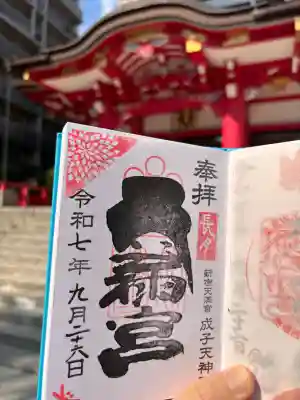 奉拝
長月
新宿天満宮
成子天神
天満宮
令和七年 九月二十六日